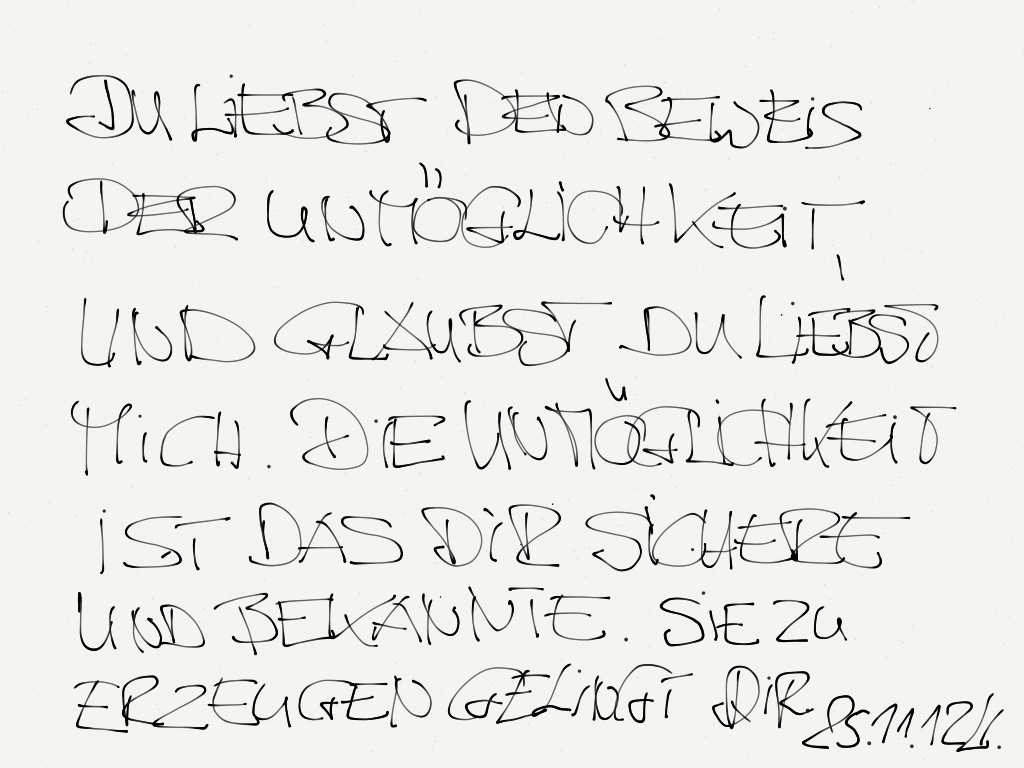 DU LiEBST DEN BEWEiS
DER UNMÖGLiCHKEiT,
UND GLAUBST DU LiEBST
MiCH. DiE UNMÖGLiCHKEiT
iST DAS DiR SiCHERE
UND BEKANNTE. SiE ZU
ERZEUGEN GELiNGT DiR
25.11.12